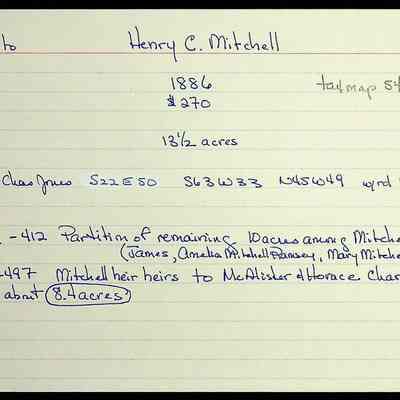 to Henry C. Mitchell
1886 tax map 54
$270
13½ acres
Chas Jones S22E50 S63W33 N45W49 w/rd
-412 Partition of remaining 10 acres among Mitche
(James, Amelia Mitchell Ramsey, Mary Mitche
-497 Mitchell heir heirs to McAlister & Horace Char
about 8.4 acres